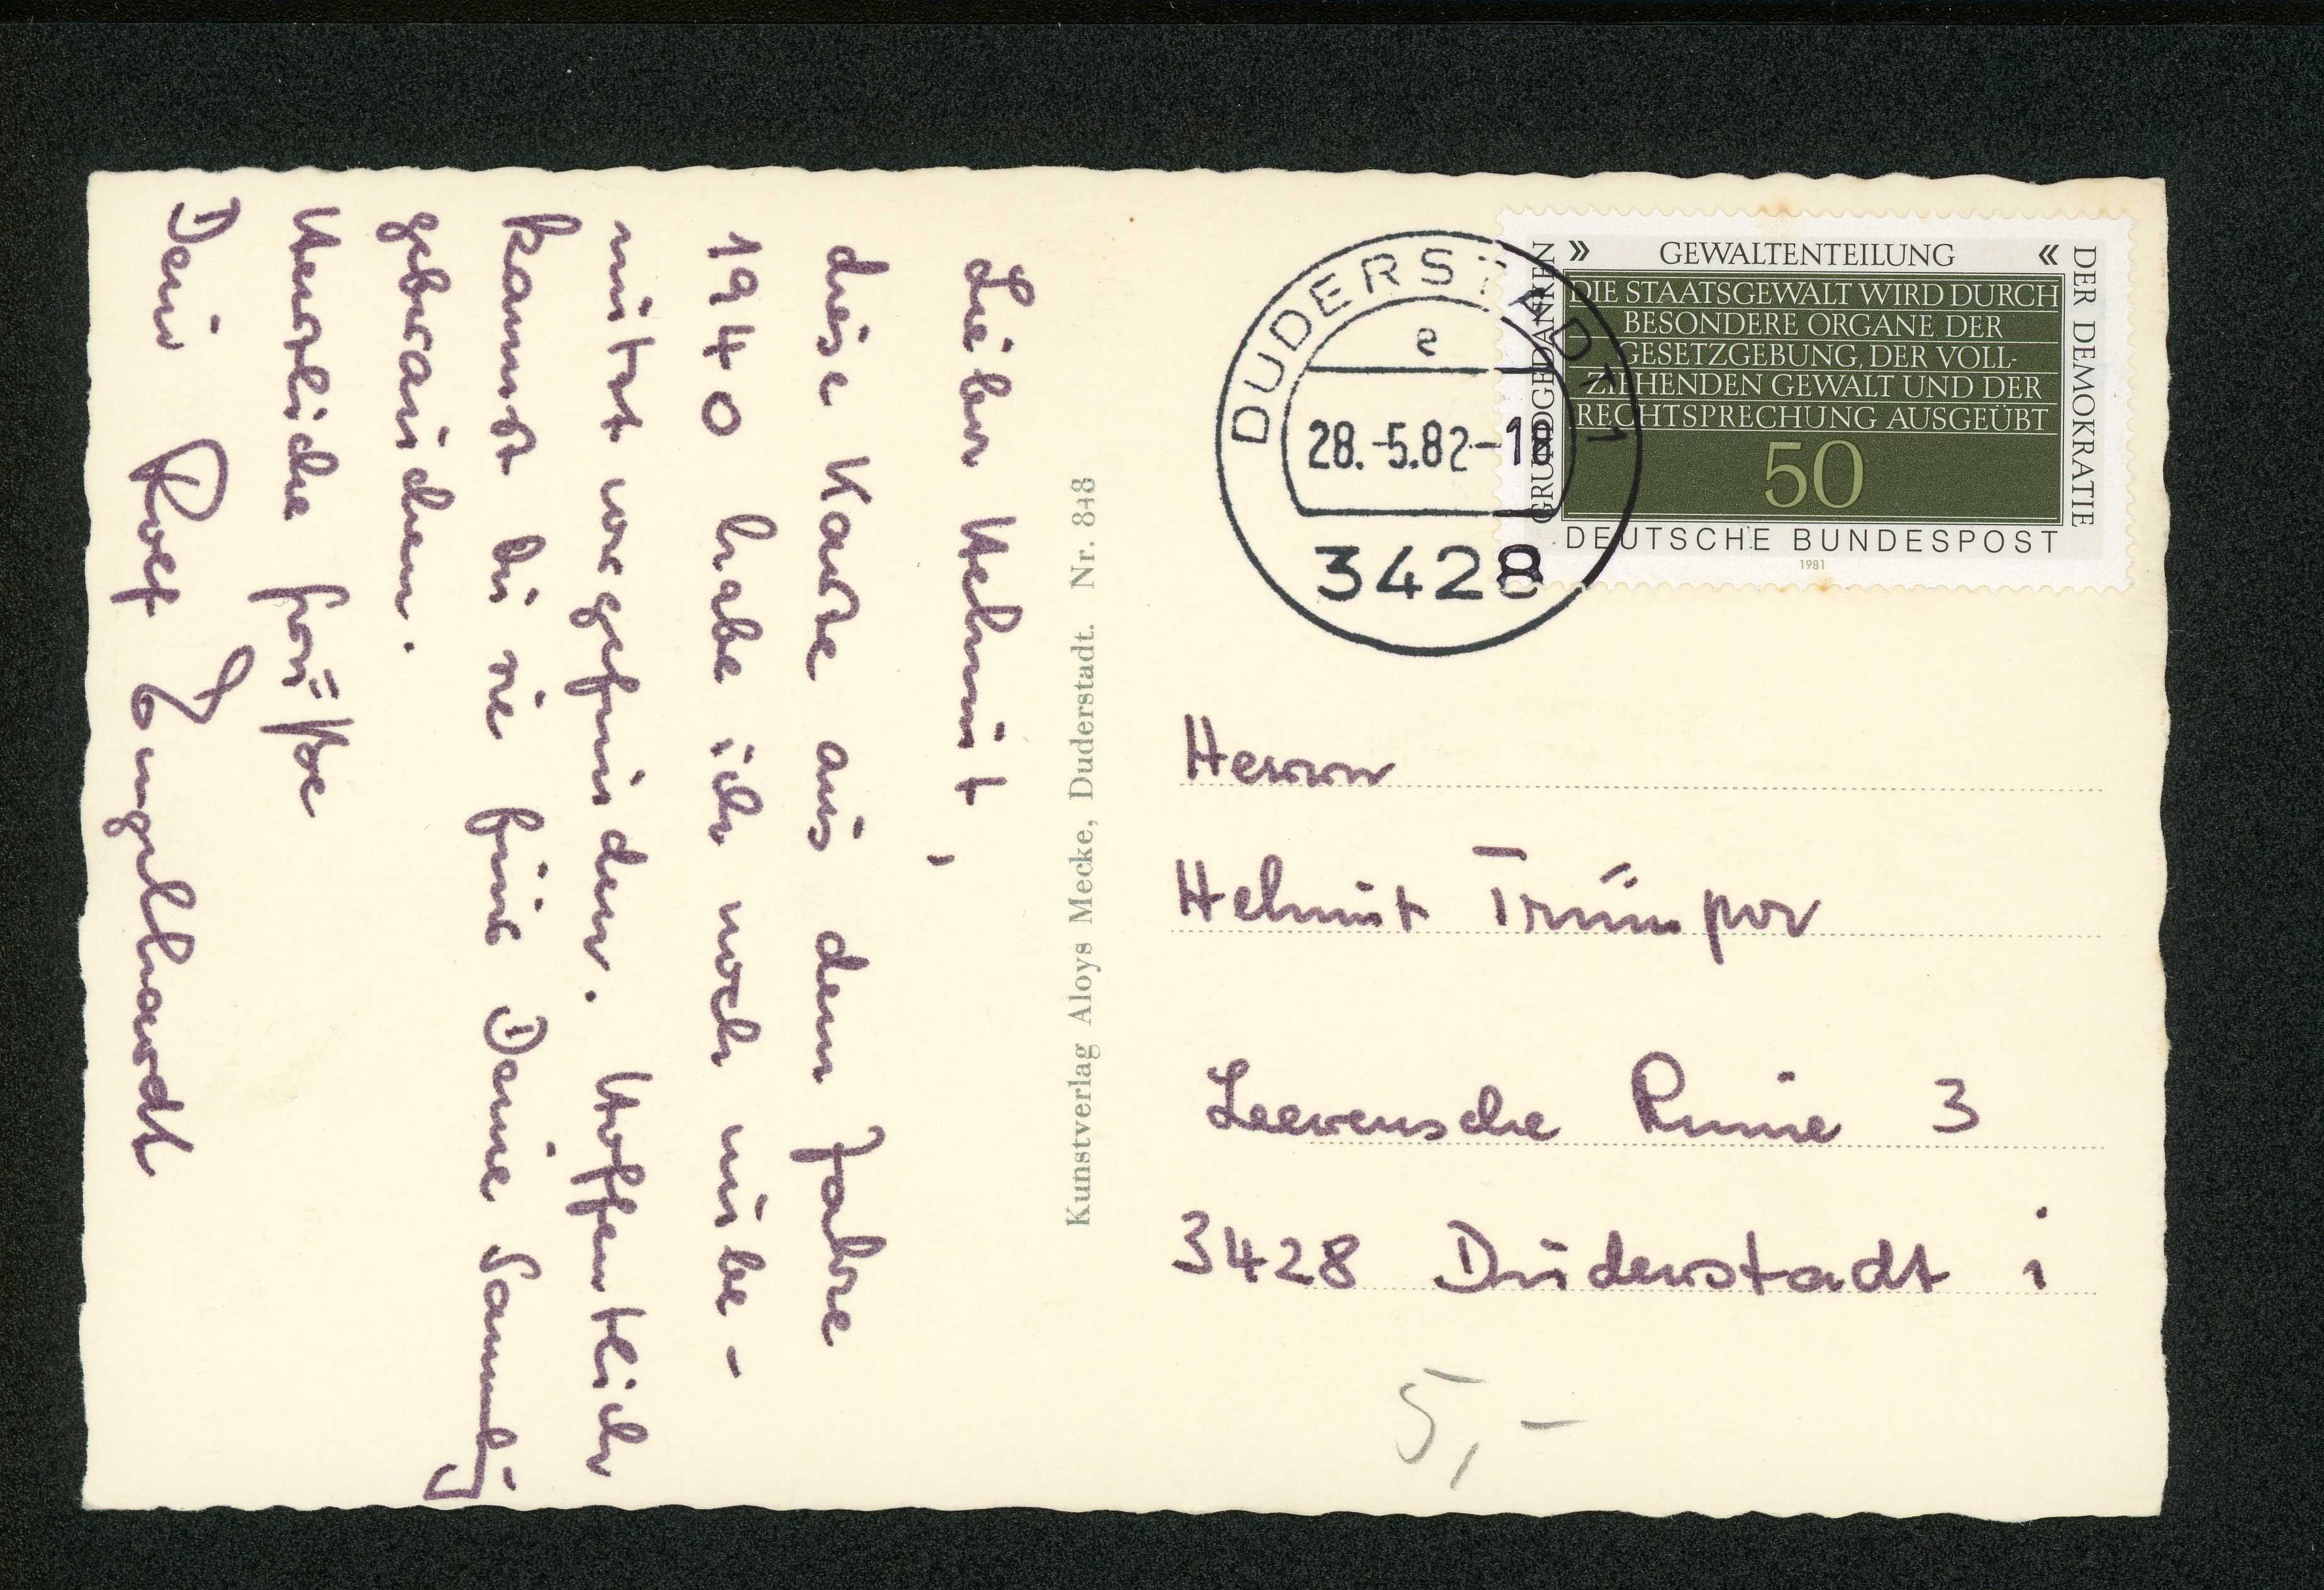 Lieber Helmut,
diese Karte aus dem Jahre
1940 habe ich noch unbe-
nutzt vorgefunden. Hoffentlich
kannst du sie für Deine Sammlg
gebrauchen.
Herzliche Grüße
Dein Rolf Engelhardt
Kunstverlag Aloys Mecke, Duderstadt. Nr. 848
DUDERSTADT 1
e
28.-5.82-18
3428
» GEWALTENTEILUNG «
GRUNDGEDANKEN
DER DEMOKRATIE
DIE STAATSGEWALT WIRD DURCH
BESONDERE ORGANE DER
GESETZGEBUNG, DER VOLL-
ZIEHENDEN GEWALT UND DER
RECHTSPRECHUNG AUSGEÜBT
50
DEUTSCHE BUNDESPOST
1981
Herrn
Helmut Trümper
3
3428 Duderstadt 1
5,-